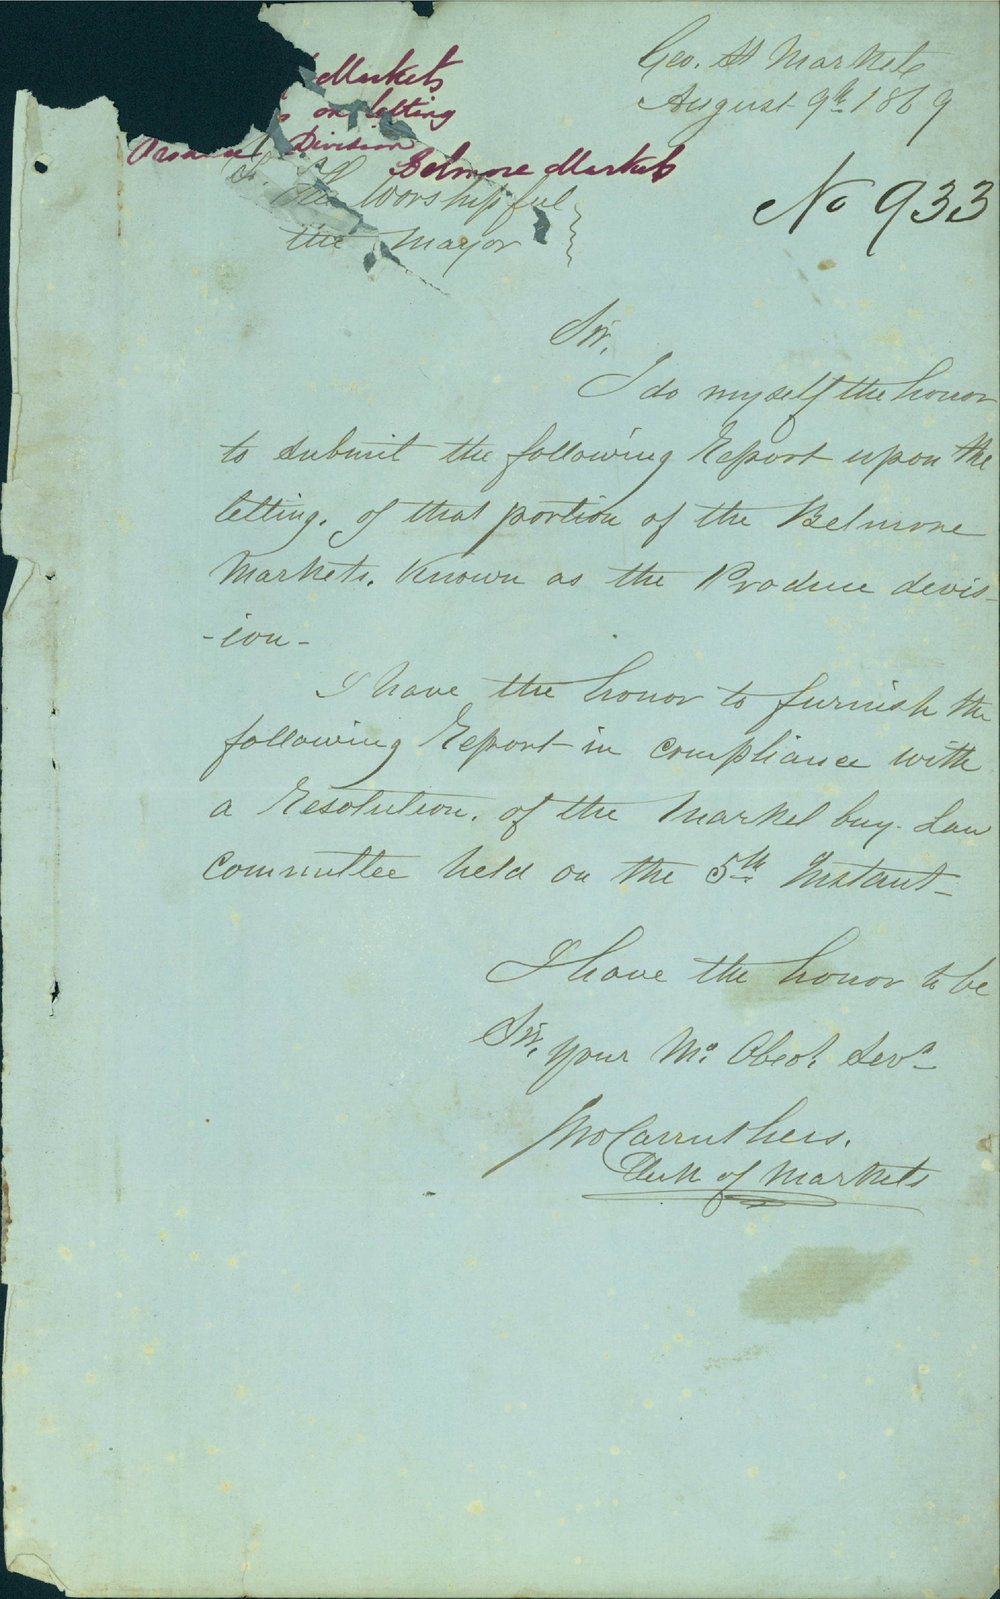 Geo. St Markets
August 9th 1869
Markets
on letting
Produce Division
Belmore Markets
No 933
To. The Worshipful
the Mayor
Sir,
I do myself the honor
to submit the following Report upon the
letting. of that portion of the Belmore
Markets. Known as the Produce devis-
-ion-
I have the honor to furnish the
following Report in compliance with
a Resolution. of the Market buy. Law
Committee held on the 5th Instant-
I have the honor to be
Sir, your Mo. Obedt. Servt
Jno Carruthers.
Clerk of Markets